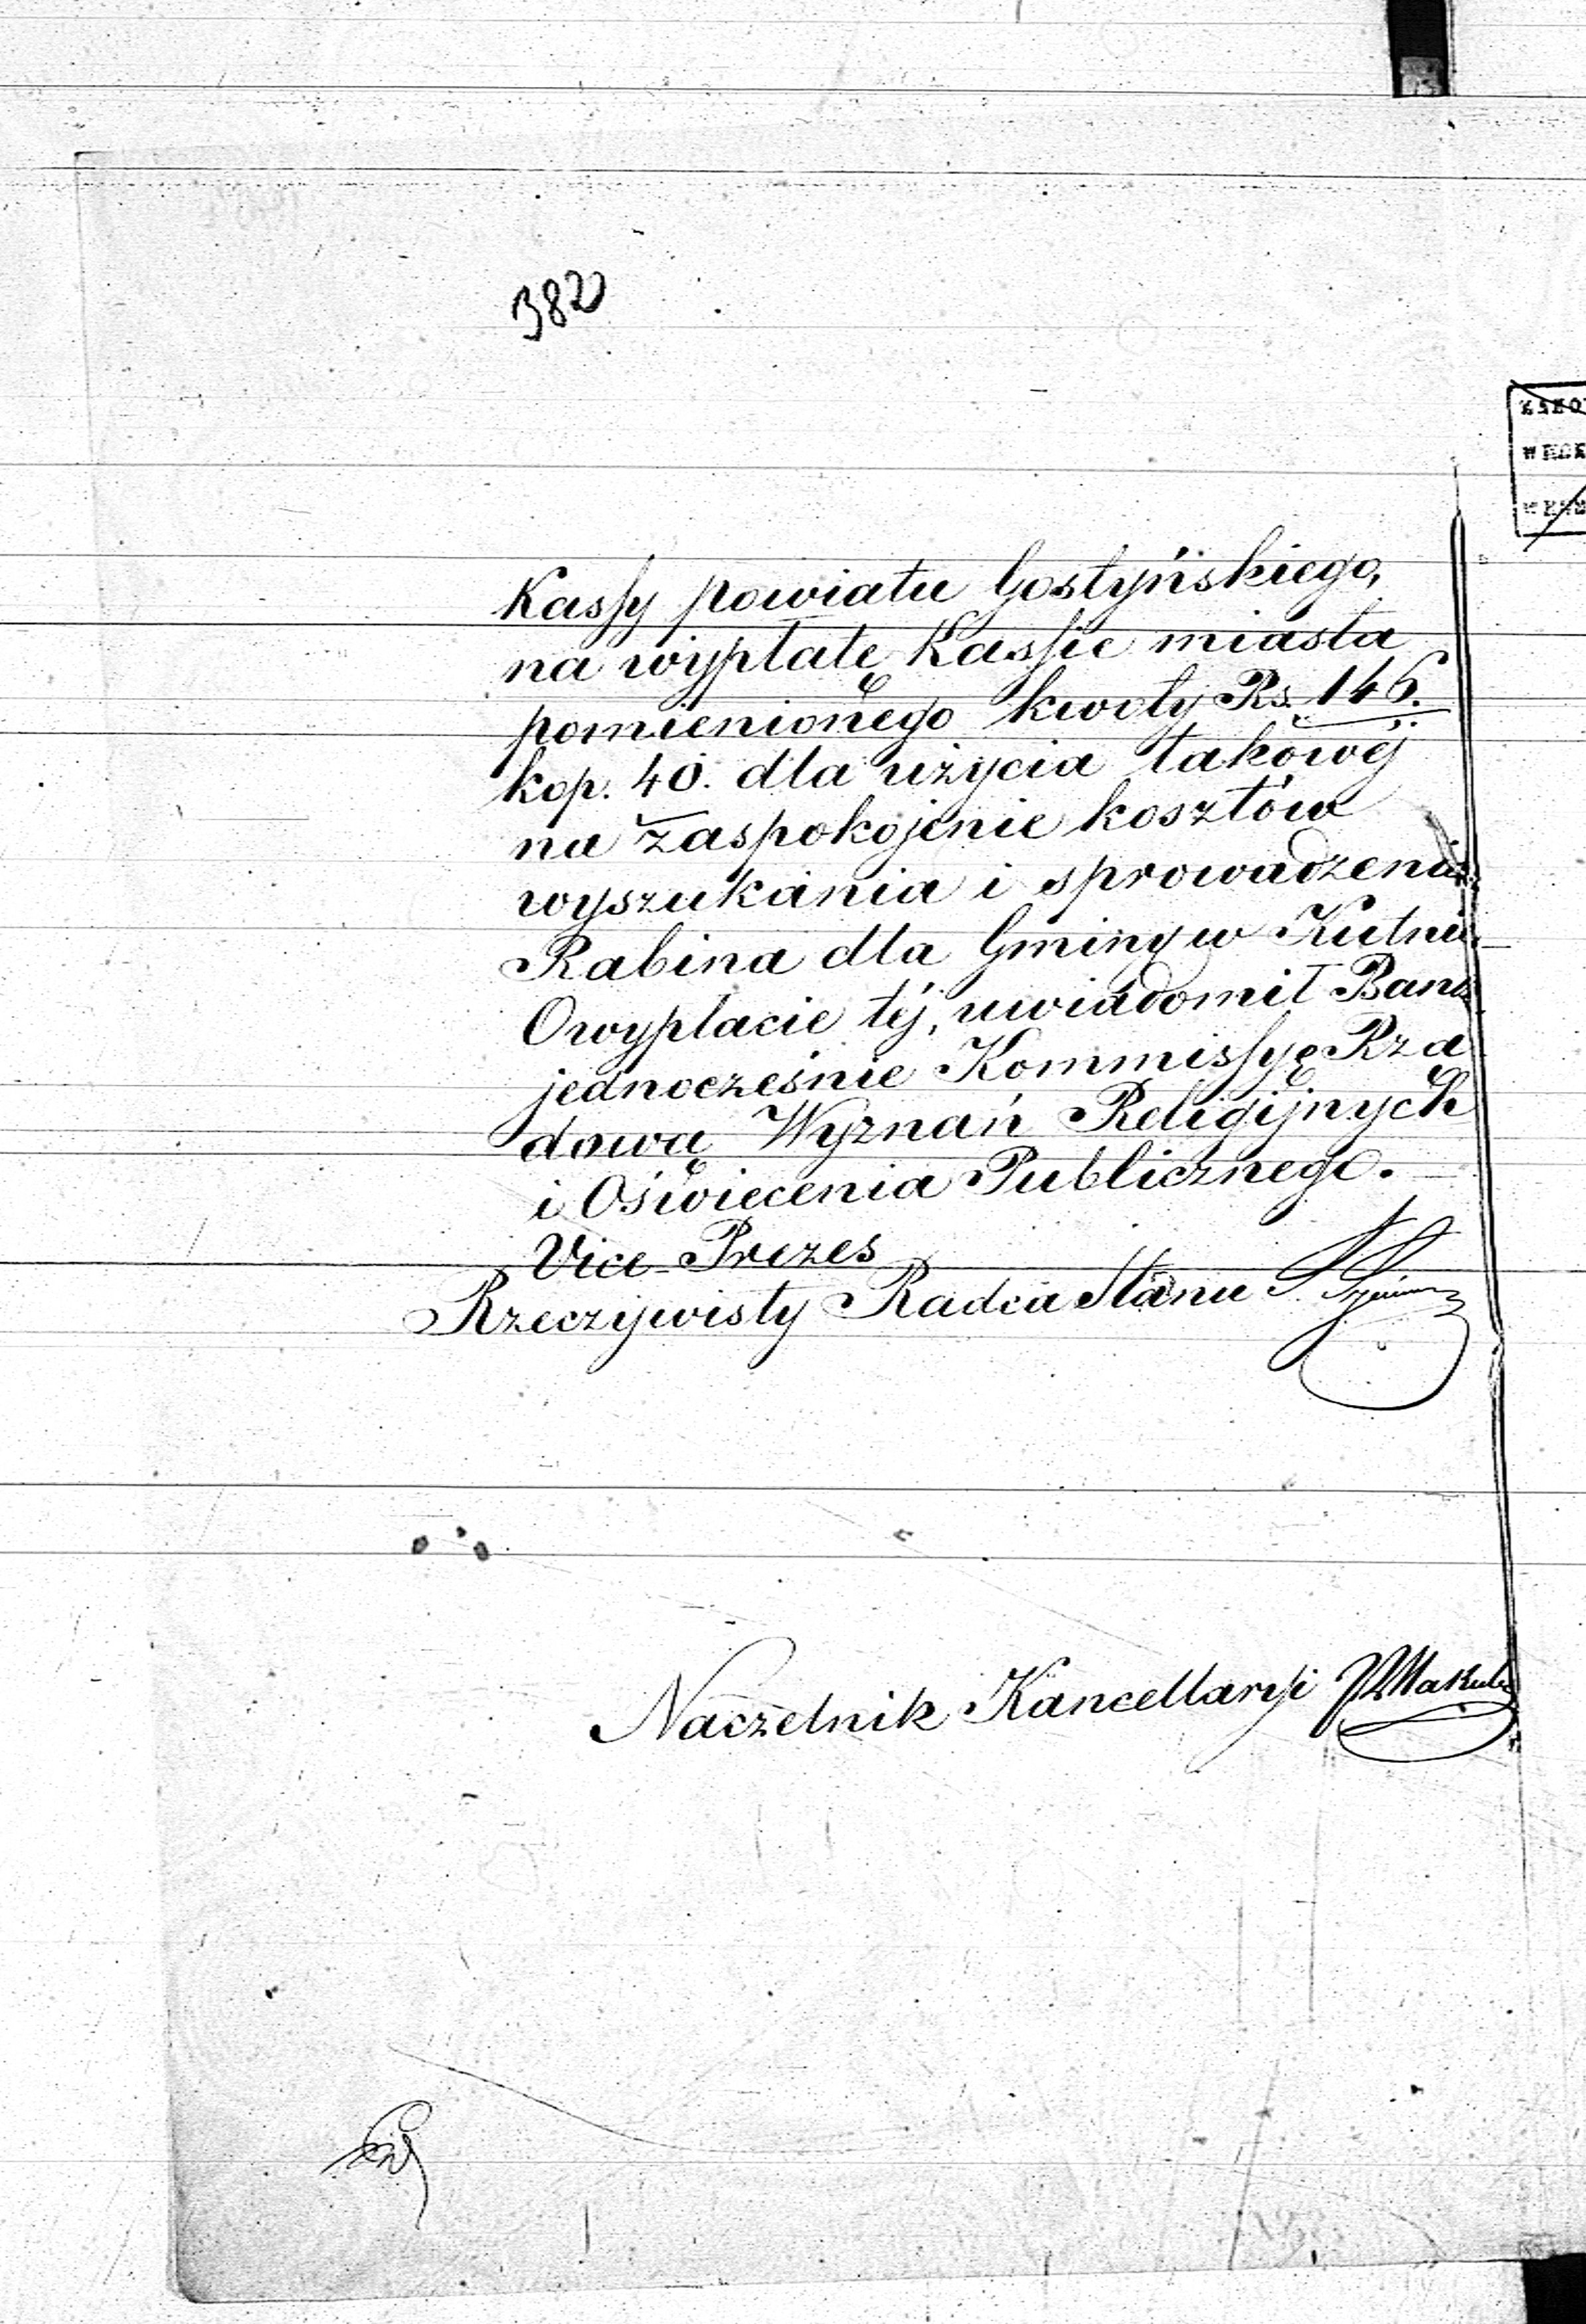 382
Kassy powiatu Gostyńskiego,
na wypłatę Kassie miasta
pomienionego kwoty Rs. 146.
kop. 40. dla użycia takowéj
na zaspokojenie kosztów
wyszukania i sprowadzenia
Rabina dla Gminy w Kutnie.
O wypłacie téj, uwiadomił Bank
jednocześnie Kommissyę Rzą
dową Wyznań Religijnych
i Oświecenia Publicznego.
Vice-Prezes
Rzeczywisty Radca Stanu
Naczelnik Kancellaryi